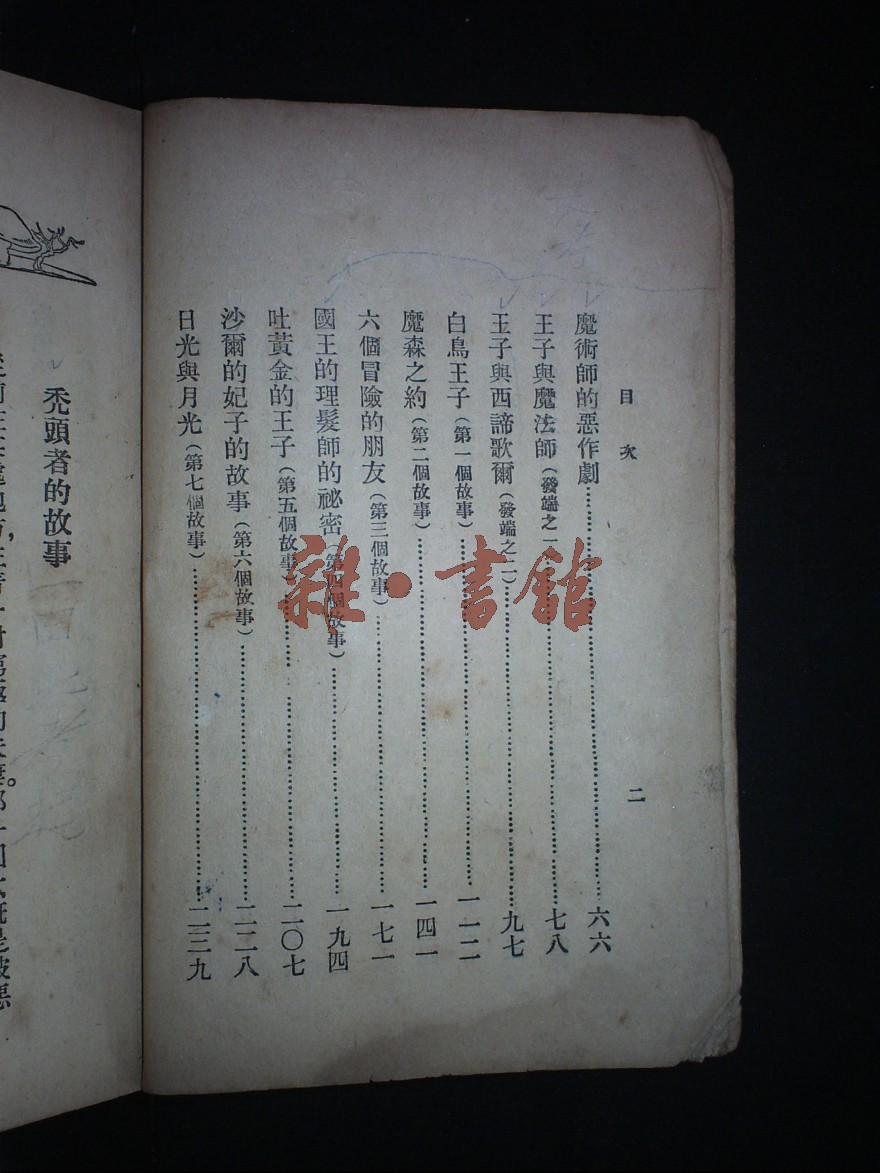 目次
二
魔術師的惡作劇……六六
王子與魔法師（發端之一）……七八
王子與西諦歌爾（發端之二）……九七
白鳥王子（第一個故事）……一一二
魔森之約（第二個故事）……一四一
六個冒險的朋友（第三個故事）……一七一
國王的理髮師的祕密（第四個故事）……一九四
吐黃金的王子（第五個故事）……二〇七
沙爾的妃子的故事（第六個故事）……二二八
日光與月光（第七個故事）……二三九
雜·書館
禿頭者的故事